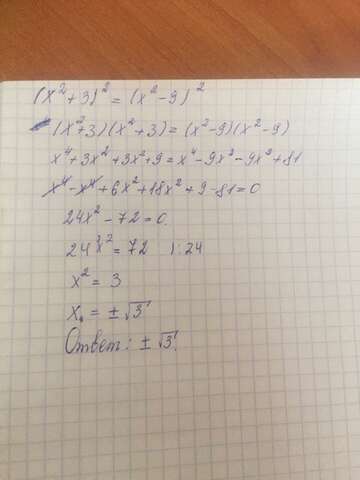 (x²+3)² = (x²-9)²
(x²+3)(x²+3) = (x²-9)(x²-9)
x⁴+3x²+3x²+9 = x⁴-9x²-9x²+81
x⁴-x⁴+6x²+18x²+9-81=0
24x²-72=0
24x²=72 |:24
x²=3
x=±√3
Ответ: ±√3